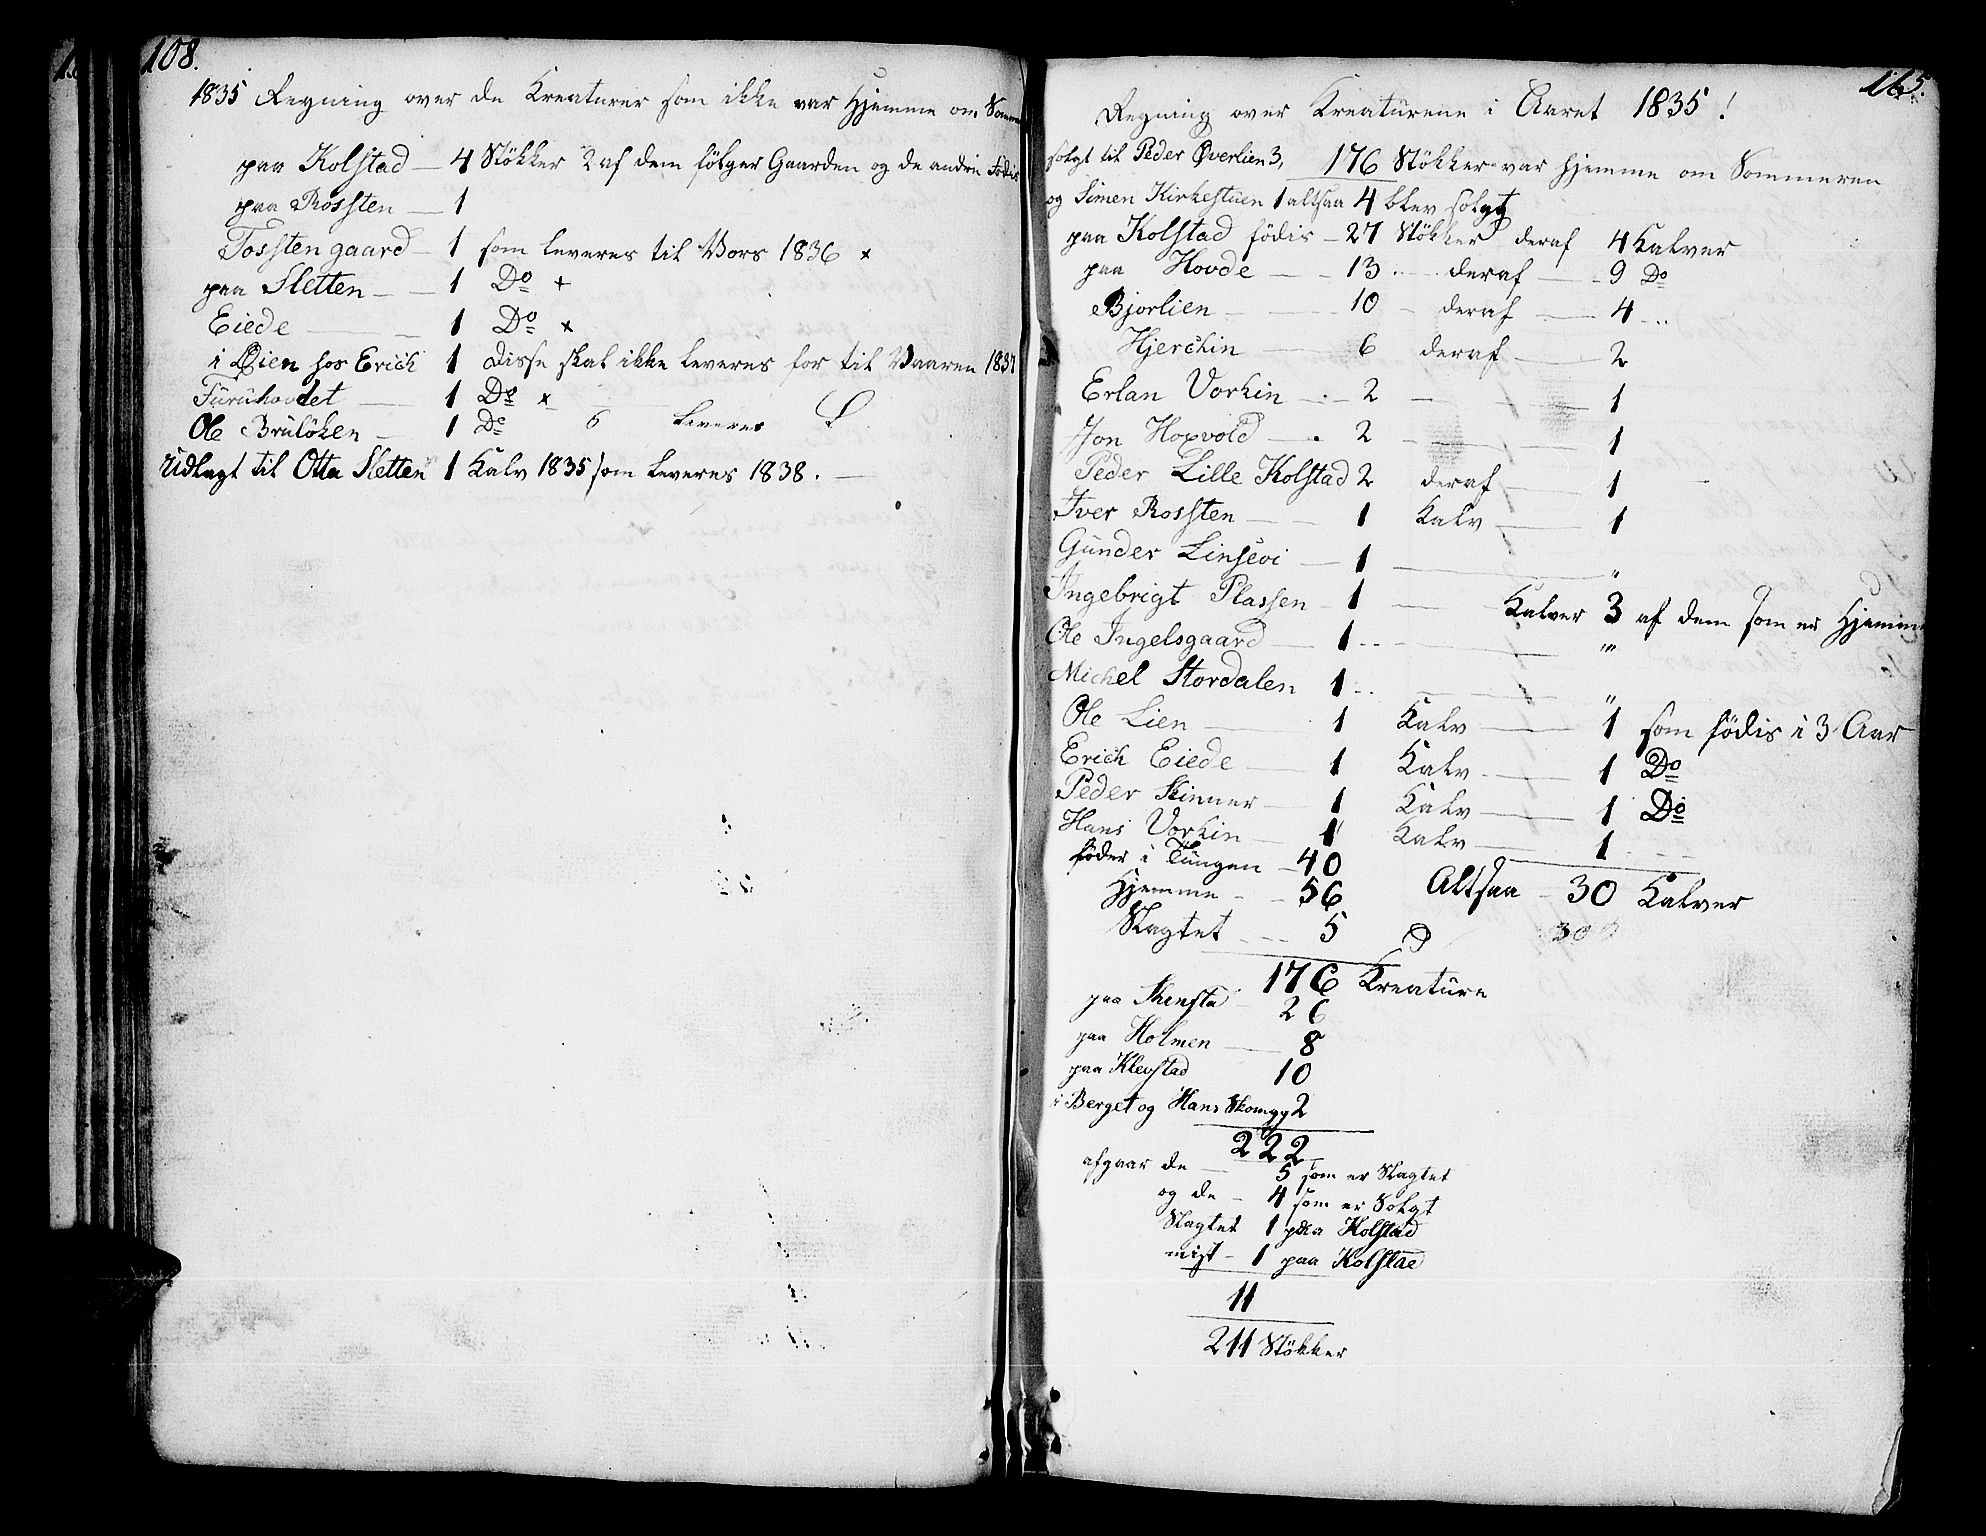 108.
1835 Regning over de Kreaturer som ikke var Hjemme om Somme
paa Kolstad — 4 Støkker 2 af dem følger Gaarden og de andre födis
paa Rossten — 1
Tossten gaard — 1 som leveres til Vors 1836 x
paa Sletten — 1 Do +
Eiede — 1 Do x
i Øien hos Erich 1 disse skal ikke leveres for til Vaaren 1837
Furuhovdet — 1 Do x
Ole Brüløken — 1 Do 6 leveres
Udlagt til Otta Sletten 1 Kalv 1835 som leveres 1838. —
165.
Regning over Kreaturene i Aaret 1835!
solgt til Peder Øverlien 3, 176 Støkker var hjemme om Sommeren
og Simen Kirkestuen 1 altsaa 4 blev solgt
paa Kolstad födis — 27 Støkker deraf 4 Kalver
paa Hovde — 13 deraf — 9 Do
Bjorlien — 10 — deraf — 4
Hjerchin — 6 deraf — 2
Erlan Vorkin — 2 — 1
Jon Hoxvold — 2 — 1
Peder Lille Kolstad 2 deraf — 1
Iver Rossten — 1 Kalv — 1
Gunder Linsevi — 1 — "
Ingebrigt Plassen — 1 — Kalver 3 af dem som er Hjemme
Ole Ingelsgaard — 1 — "
Michel Stordalen 1 — "
Ole Lien — 1 Kalv — 1 som födis i 3 Aar
Erich Eiede — 1 Kalv — 1 Do
Peder Skinner — 1 Kalv — 1 Do
Hans Vorkin — 1 Kalv — 1
föder i Tüngen — 40
Hjemme — 56 Altsaa — 30 Kalver
Slagtet — 5 30
176 Kreature
paa Skensta 26
paa Holmen — 8
paa Klevstad 10
i Berget og Hans Skomgy 2
222
afgaar de — 5 som er Slagtet
og de — 4 som er Solgt
Slagtet 1 paa Kolstad
mist — 1 paa Kolstae
11
211 Støkker